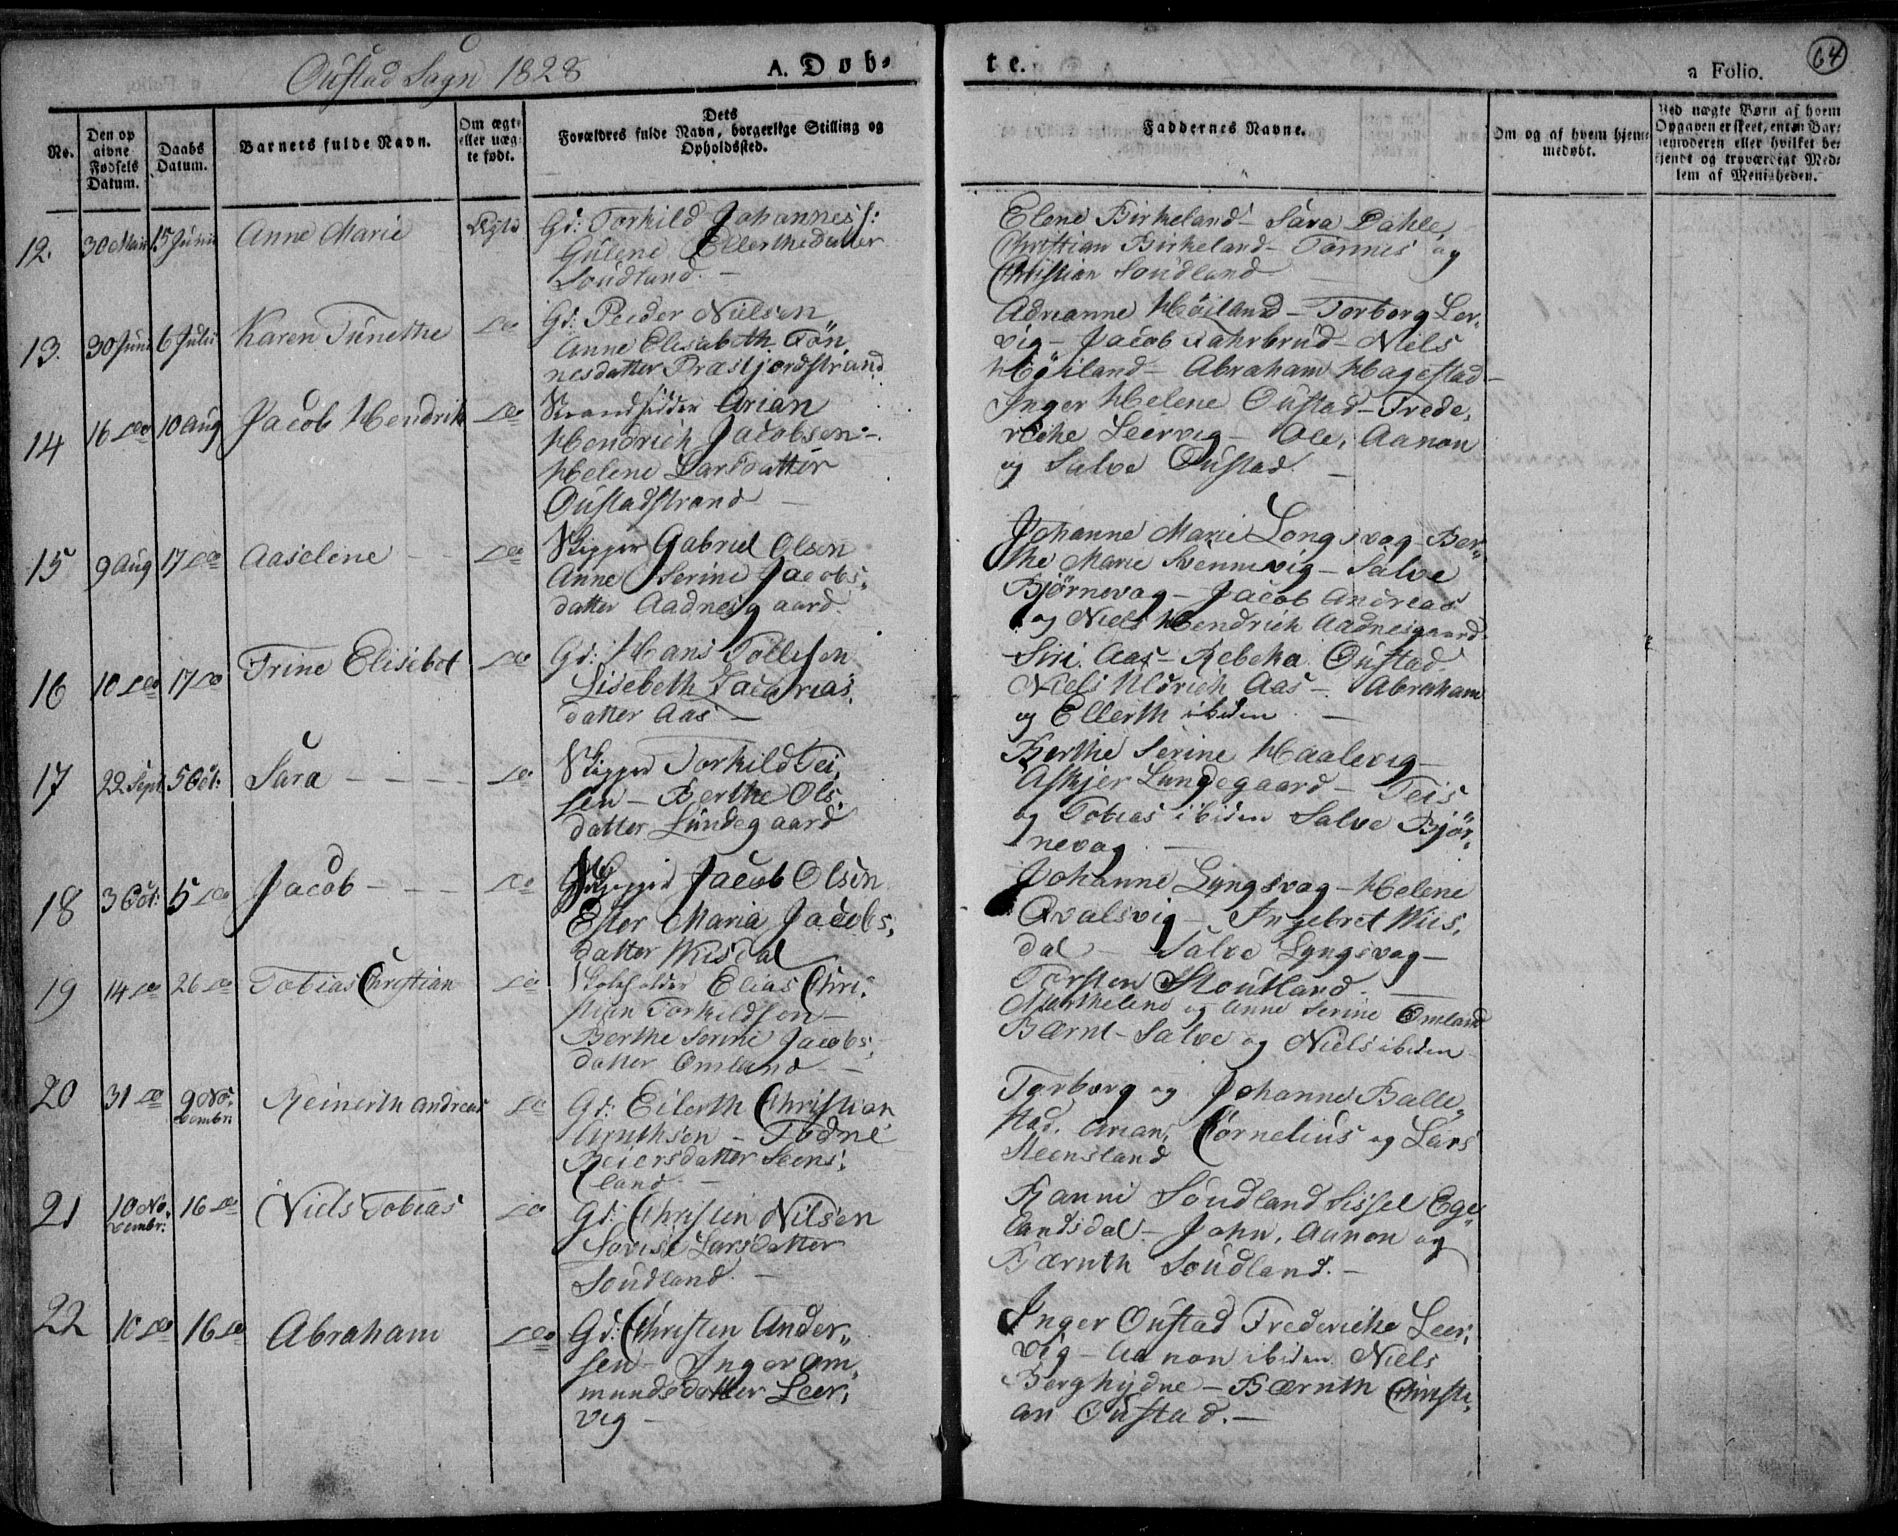 Oustad Sogn 1828
A. Døb-
te.
a Folio.
64
No.
Den op
givne
Fødsels
Datum.
Daabs
Datum.
Barnets fulde Navn.
Om ægt-
eller uæg-
te født.
Dets
Forældres fulde Navn, borgerlige Stilling og
Opholdssted.
Faddernes Navne.
Om og af hvem hjem-
medøbt.
Ved uægte Børn af hvem
Opgaven er skeet, enten Bar-
nemoderen eller hvilket be-
kjendt og troværdigt Med-
lem af Menigheden.
12. 30 Maii 15 Junii Anne Marie Ægte
Gd: Torkild Johannes:
Gulene Ellerthsdatter
Soudland. -
Elene Birkeland - Sara Dahle,
Christian Birkeland - Tønnes og
Christian Soudland
13. 30 Juni 6 Julii Karen Tunethe do
Gd: Peder Nielsen
Anne Elisabeth Tøn
nesdatter Præstjordstrand
Adrianne Høiland - Torborg Ler-
vig - Jacob Fahrbrud - Niels
Høiland - Abraham Hagestad -
14 16 do 10 Aug Jacob Hendrik do
Strandsidder Arian
Hendrich Jacobsen -
Helene Larsdatter
Oustadstrand -
Inger Helene Oustad - Frede,
riche Leervig - Ole, Aanon
og Salve Oustad. -
15 9 Aug 17 do Aaselene - - do
Skipper Gabriel Olsen
Anne Serine Jacobs,
datter Aadnesgaard.
Johanne Marie Longsvag - Ber-
the Marie Svennevig - Salve
Bjørnevag - Jacob Andreas
og Niels Hendrich Aadnesgaard
16 10 do 17 do Trine Elisebet do
Gd: Hans Tollefsen
Lisebeth Zacarias,
datter Aas -
Siri Aas - Rebeka Oustad
Niels Uldrich Aas - Abraham
og Ellerth ibiden -
17 22 Sept 5 Oct: Sara - - - - do
Skipper Torkild Tei,
sen - Berthe Ols,
datter Lundegaard
Berthe Serine Haalevig -
Askjer Lundegaard - Teis
og Tobias ibiden Salve Bjør-
nevag. -
18 3 Oct: 5 do Jacob - - - do
Skipper Jacob Olsen
Ester Maria Jacobs,
datter Wisdal
Johanne Lyngsvag - Helene
Qvalsvig - Ingebret Wiis,
dal - Salve Lyngsvag -
Torsten Stoutland. -
19 14 do 26 do Tobias Christian do
Skoleholder Elias Chri-
stian Torkildsen -
Berthe Serine Jacobs,
datter Omland - -
Marthelene og Anne Serine Omland
Bærnt - Salve og Niels ibiden
20 31 do 9 No-
vembr: Reinerth Andreas do
Gd: Eilerth Christian
Arnthsen - Todne
Reiersdatter Steens,
land. -
Torborg og Johanne Balle,
stad. Arian, Cornelius og Lars
Steensland
21 10 No-
vembr: 16 do Niels Tobias do
Gd: Christen Nilsen
Lovise Larsdatter
Soudland. -
Ranni Soudland Sissel Ege-
landsdal - John, Aanon og
Bærnth Soudland. -
22 10 do 16 do Abraham do
Gd: Christen Ander-
sen - Inger Om,
mundsdatter Leer,
vig -
Inger Oustad Frederiche Leer,
vig - Aanon ibiden Niels
Berghydne - Bærnth Christi,
an Oustad. -